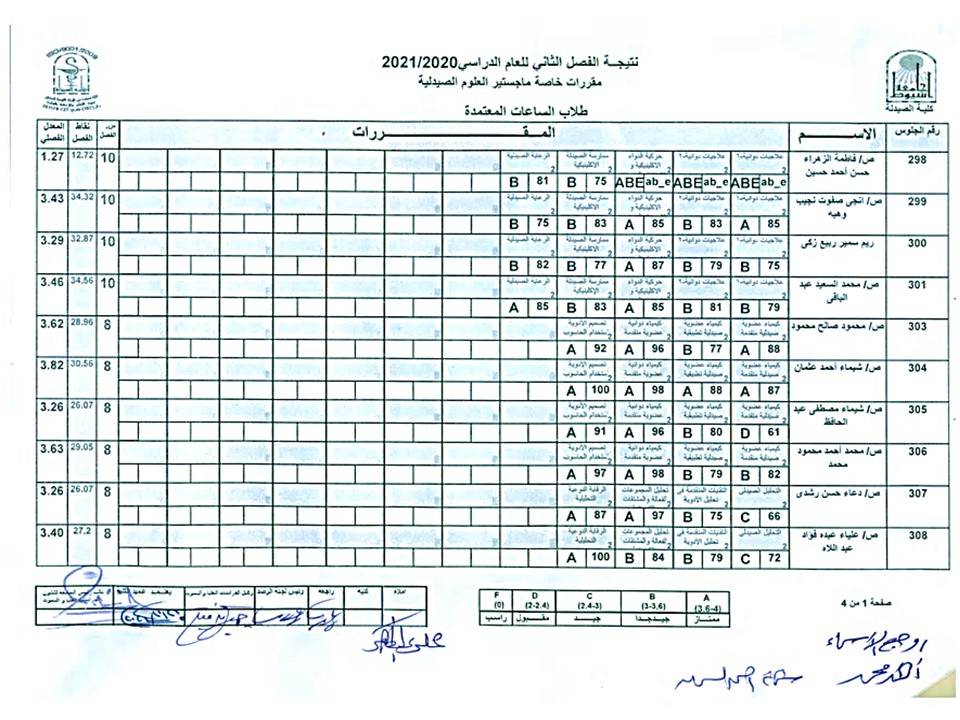 نتيجـة الفصل الثاني للعام الدراسي2021/2020
مقررات خاصة ماجستير العلوم الصيدلية
طلاب الساعات المعتمدة
ISO/9001/2008
جامعة أسيوط
كلية الصيدلة
رقم الجلوس الاســـم المقـــررات نقاط الفصل المعدل الفصلي
298 ص/ فاطمة الزهراء حسن أحمد حسين علاجيات دوائية-٢ علاجيات دوائية-١ حركية الدواء الاكلينيكية و ممارسة الصيدلة الاكلينيكية الرعاية الصيدلية 10 12.72 1.27
ABE ab_e ABE ab_e ABE ab_e B 75 B 81
299 ص/ انجى صفوت نجيب وهبه علاجيات دوائية-٢ علاجيات دوائية-١ حركية الدواء الاكلينيكية و ممارسة الصيدلة الاكلينيكية الرعاية الصيدلية 10 34.32 3.43
A 85 B 83 A 85 B 83 B 75
300 ريم سمير ربيع زكى علاجيات دوائية-٢ علاجيات دوائية-١ حركية الدواء الاكلينيكية و ممارسة الصيدلة الاكلينيكية الرعاية الصيدلية 10 32.87 3.29
B 75 B 79 A 87 B 77 B 82
301 ص/ محمد السعيد عبد الباقى علاجيات دوائية-٢ علاجيات دوائية-١ حركية الدواء الاكلينيكية و ممارسة الصيدلة الاكلينيكية الرعاية الصيدلية 10 34.56 3.46
B 79 B 81 A 85 B 83 A 85
303 ص/ محمود صالح محمود كيمياء عضوية صيدلية متقدمة كيمياء عضوية صيدلية تطبيقية كيمياء دوائية عضوية متقدمة تصميم الادوية باستخدام الحاسوب 8 28.96 3.62
A 88 B 77 A 96 A 92
304 ص/ شيماء أحمد عثمان كيمياء عضوية صيدلية متقدمة كيمياء عضوية صيدلية تطبيقية كيمياء دوائية عضوية متقدمة تصميم الادوية باستخدام الحاسوب 8 30.56 3.82
A 87 A 88 A 98 A 100
305 ص/ شيماء مصطفى عبد الحافظ كيمياء عضوية صيدلية متقدمة كيمياء عضوية صيدلية تطبيقية كيمياء دوائية عضوية متقدمة تصميم الادوية باستخدام الحاسوب 8 26.07 3.26
D 61 B 80 A 96 A 91
306 ص/ محمد أحمد محمود محمد كيمياء عضوية صيدلية متقدمة كيمياء عضوية صيدلية تطبيقية كيمياء دوائية عضوية متقدمة تصميم الادوية باستخدام الحاسوب 8 29.05 3.63
B 82 B 79 A 98 A 97
307 ص/ دعاء حسن رشدى التحليل الصيدلي التقنيات المتقدمة فى تحليل الأدوية تحليل المجموعات الفعالة والمشتقات الرقابة النوعية التحليلية 8 26.07 3.26
C 66 B 75 A 97 A 87
308 ص/ علياء عبده فؤاد عبد اللاه التحليل الصيدلي التقنيات المتقدمة فى تحليل الأدوية تحليل المجموعات الفعالة والمشتقات الرقابة النوعية التحليلية 8 27.2 3.40
C 72 B 79 B 84 A 100
صفحة 1 من 4
A (3.6-4) B (3-3,6) C (2.4-3) D (2-2.4) F (0)
ممتاز جيدجدا جيد مقبول راسب
أملاه كتبه راجعه رئيس لجنة الرصد وكيل الدراسات العليا والبحوث يعتمد